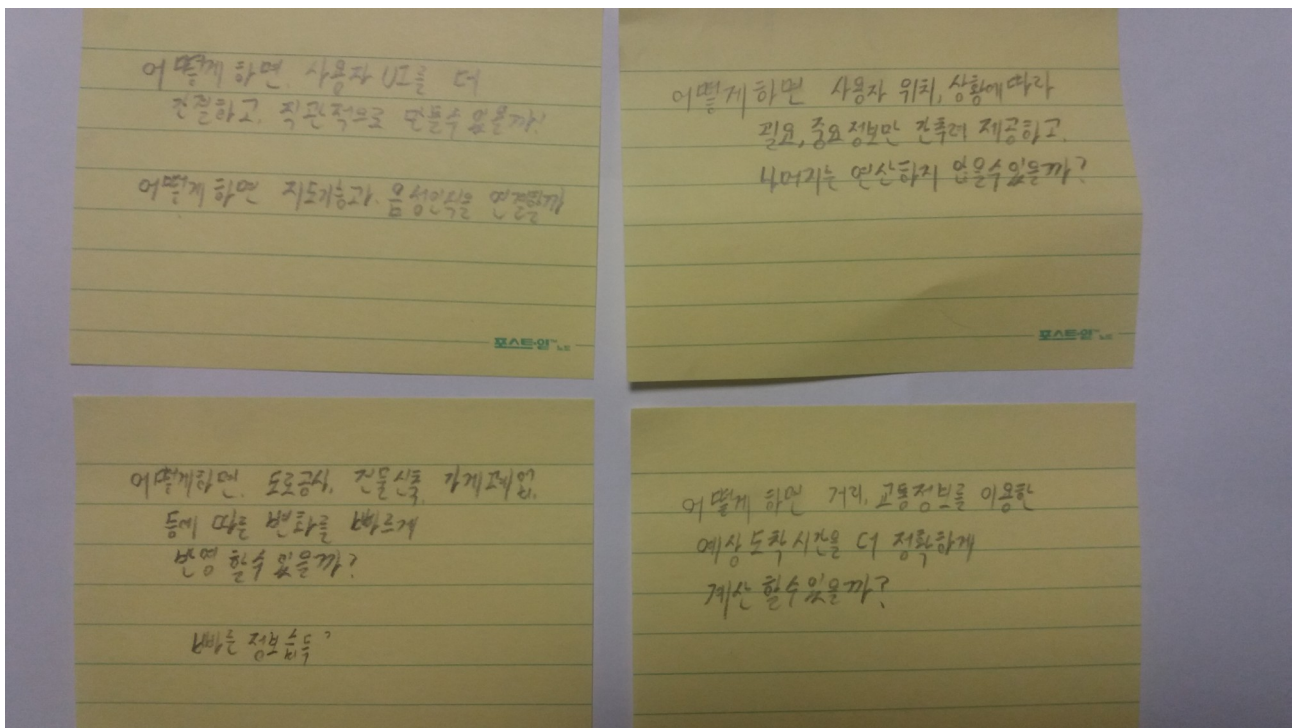 어떻게 하면 사용자 UI를 더
간결하고, 직관적으로 만들수 있을까?
어떻게 하면 지도기능과 음성인식을 연결할까
포스트-잇™ 노트
어떻게 하면 사용자 위치, 상황에 따라
필요, 중요 정보만 간추려 제공하고,
나머지는 연산하지 않을수있을까?
포스트-잇™ 노트
어떻게하면, 도로공사, 건물신축, 가게폐업,
등에 따른 변화를 빠르게
반영 할수 있을까?
빠른 정보습득?
어떻게 하면 거리, 교통정보를 이용한
예상도착시간을 더 정확하게
계산 할수있을까?